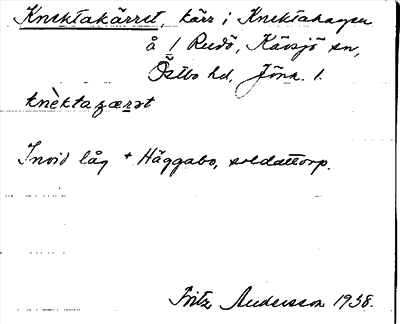 Knektakärret, kärr i Knektahagen
å 1 Rudö, Kävsjö sn,
Östbo hd, Jönk. l.
knèktaçærət
Invid låg + Häggabo, soldattorp.
Fritz Andersson 1938.